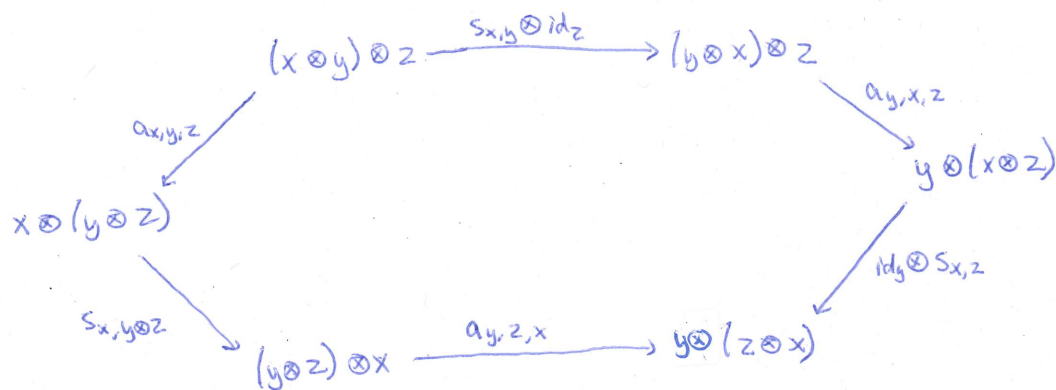 (x ⊗ y) ⊗ z s_{x,y} ⊗ id_z (y ⊗ x) ⊗ z
a_{x,y,z} a_{y,x,z}
x ⊗ (y ⊗ z) y ⊗ (x ⊗ z)
s_{x,y⊗z} id_y ⊗ s_{x,z}
(y ⊗ z) ⊗ x a_{y,z,x} y ⊗ (z ⊗ x)